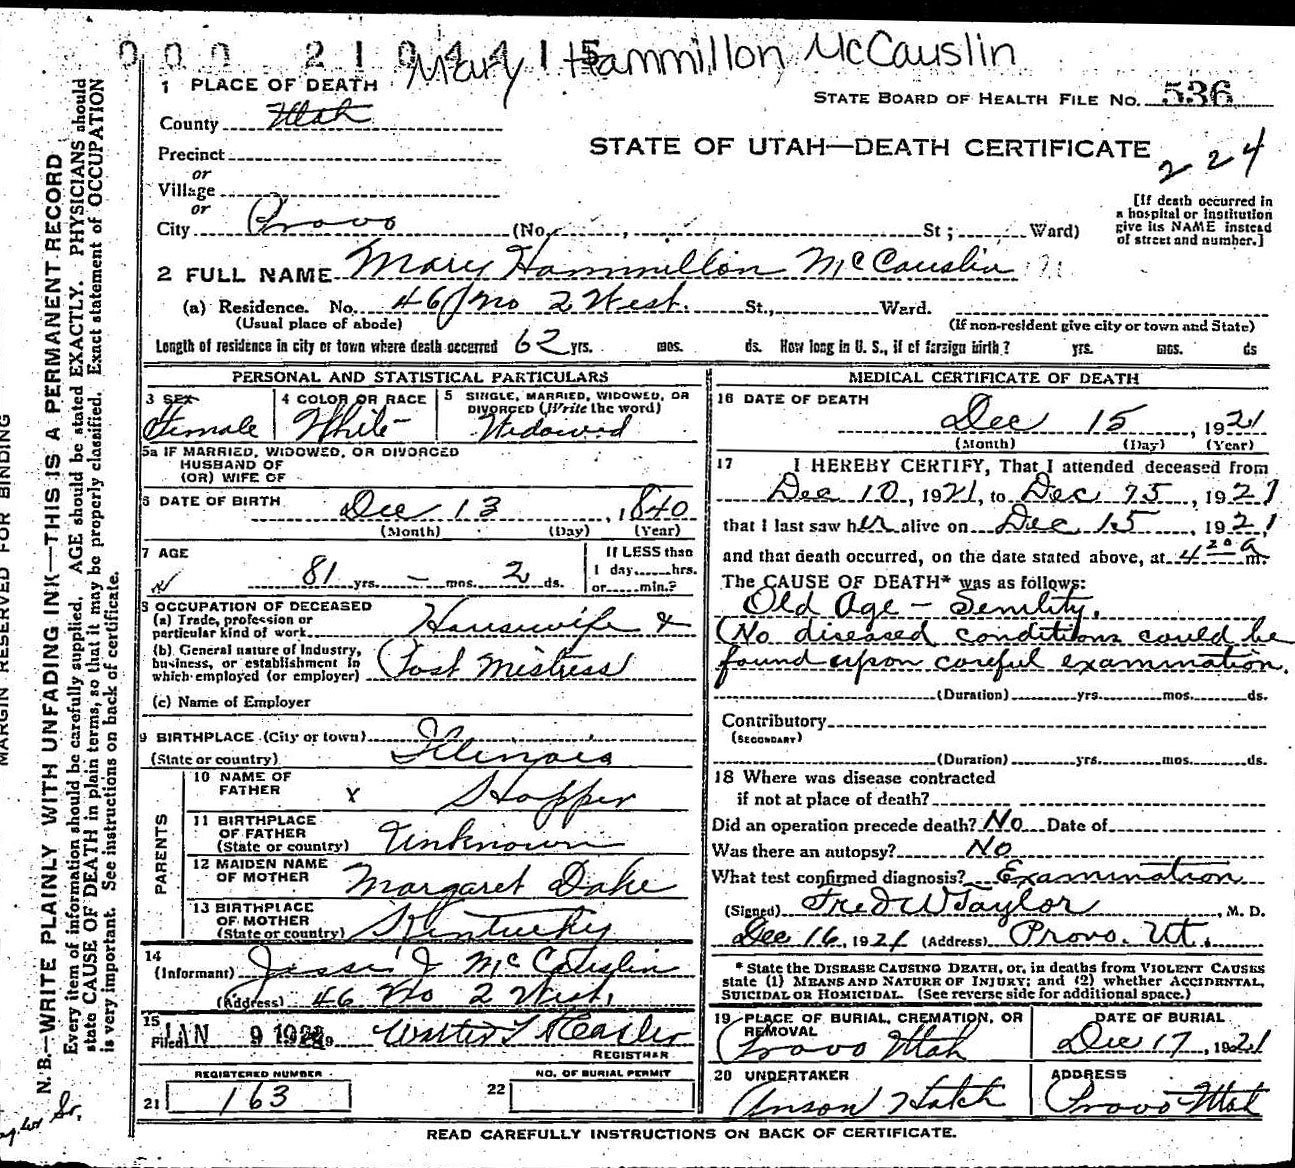 000 2104415
Mary Hammillon McCauslin
1 PLACE OF DEATH
STATE BOARD OF HEALTH FILE NO. 536
County Utah
STATE OF UTAH—DEATH CERTIFICATE
224
Precinct
or
Village
or
City Provo (No. , St ; Ward)
[If death occurred in
a hospital or institution
give its NAME instead
of street and number.]
2 FULL NAME Mary Hammillon McCauslin
(a) Residence. No. 46 No 2 West. St., Ward.
(Usual place of abode) (If non-resident give city or town and State)
Length of residence in city or town where death occurred 62 yrs. mos. ds. How long in U. S., if of foreign birth? yrs. mos. ds
PERSONAL AND STATISTICAL PARTICULARS
3 SEX
Female
4 COLOR OR RACE
White
5 SINGLE, MARRIED, WIDOWED, OR
DIVORCED (Write the word)
Widowed
5a IF MARRIED, WIDOWED, OR DIVORCED
HUSBAND OF
(OR) WIFE OF
6 DATE OF BIRTH
Dec 13, 1840
(Month) (Day) (Year)
7 AGE
81 yrs. — mos. 2 ds.
If LESS than
1 day, hrs.
or min.?
8 OCCUPATION OF DECEASED
(a) Trade, profession or
particular kind of work Housewife &
(b) General nature of Industry,
business, or establishment in
which employed (or employer) Post Mistress
(c) Name of Employer
9 BIRTHPLACE (City or town)
(State or country) Illinois
PARENTS
10 NAME OF
FATHER x Hopper
11 BIRTHPLACE
OF FATHER
(State or country) Unknown
12 MAIDEN NAME
OF MOTHER Margaret Dake
13 BIRTHPLACE
OF MOTHER
(State or country) Kentucky
14
(Informant) Jessi J McCauslin
(Address) 46 No 2 West,
15
Filed JAN 9 192
REGISTRAR
REGISTERED NUMBER
21 163
NO. OF BURIAL PERMIT
22
MEDICAL CERTIFICATE OF DEATH
16 DATE OF DEATH
Dec 15, 1921
(Month) (Day) (Year)
17 I HEREBY CERTIFY, That I attended deceased from
Dec 10, 1921, to Dec. 15, 1921
that I last saw her alive on Dec 15, 1921
and that death occurred, on the date stated above, at 4 20 a m.
The CAUSE OF DEATH* was as follows:
Old Age — Senility.
(No diseased conditions could be
found upon careful examination.
(Duration) yrs. mos. ds.
Contributory
(SECONDARY)
(Duration) yrs. mos. ds.
18 Where was disease contracted
if not at place of death?
Did an operation precede death? No Date of
Was there an autopsy? No
What test confirmed diagnosis? Examination
(Signed) Fred W Taylor, M. D.
Dec 16, 1921 (Address) Provo. Ut.
* State the DISEASE CAUSING DEATH, or, in deaths from VIOLENT CAUSES
state (1) MEANS AND NATURE OF INJURY; and (2) whether ACCIDENTAL,
SUICIDAL OR HOMICIDAL. (See reverse side for additional space.)
19 PLACE OF BURIAL, CREMATION, OR
REMOVAL
Provo Utah
DATE OF BURIAL
Dec 17, 1921
20 UNDERTAKER
Anson Hatch
ADDRESS
Provo Utah
READ CAREFULLY INSTRUCTIONS ON BACK OF CERTIFICATE.
MARGIN RESERVED FOR BINDING
N. B.—WRITE PLAINLY WITH UNFADING INK—THIS IS A PERMANENT RECORD
Every item of information should be carefully supplied. AGE should be stated EXACTLY. PHYSICIANS should
state CAUSE OF DEATH in plain terms, so that it may be properly classified. Exact statement of OCCUPATION
is very important. See instructions on back of certificate.
Sr.